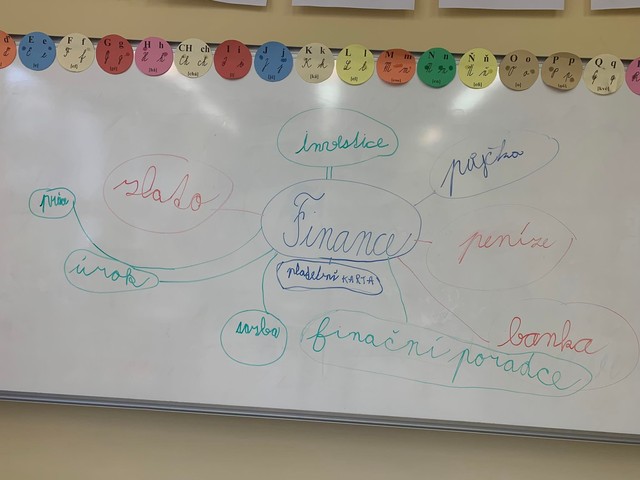 E e
F f
G g
H h
CH ch
I i
J j
K k
L l
M m
N n
Ň ň
O o
P p
Q q
investice
půjčka
zlato
Finance
peníze
úrok
platební KARTA
banka
finační poradce